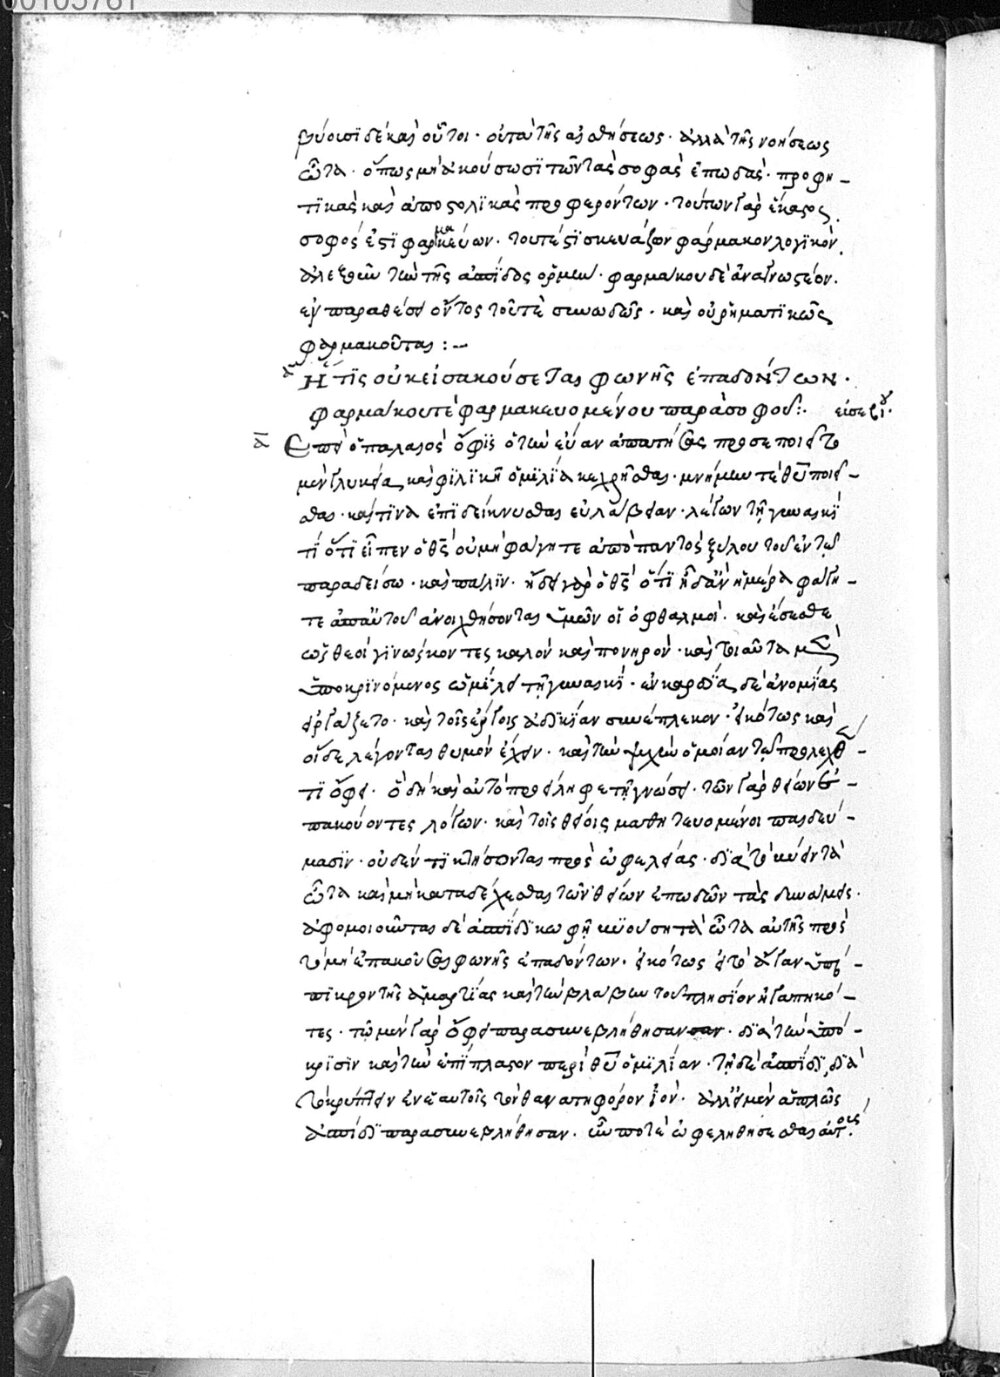 00105761
βύουσι δὲ καὶ οὗτοι· οὐ τὰ τῆς αἰσθήσεως· ἀλλὰ τῆς νοήσεως
ὦτα· ὅπως μὴ ἀκούσωσι τῶν τὰς σοφὰς ἐπωδὰς· προφη-
τικὰς καὶ ἀποστολικὰς προφερόντων· τούτων γὰρ ἕκαστος
σοφός ἐστι φαρμακεύων· τουτέστι σκευάζων φάρμακον λογικὸν
ἀλεξοῦν τὴν τῆς ἀσπίδος ὁρμὴν· φαρμάκου δὲ ἀναγνωστέον·
ἐν παραθέσει οὕτος τοῦτε συνωδῶς· καὶ οὐ ῥηματικῶς
φαρμακοῦται :-
Ἥτις οὐκ εἰσακούσεται φωνῆς ἐπαδόντων·
φαρμάκου τε φαρμακευομένου παρὰ σοφοῦ:·
Ἐπεὶ ὁ παλαιὸς ὄφις ὁ τὴν εὔαν ἀπατήσας προσεποιεῖτο
μὲν γλυκεία καὶ φιλικῇ ὁμιλία κεχρῆσθαι· μνήμην τε θυ ποιεῖ-
σθαι· καί τινα ἐπιδείκνυσθαι εὐλάβειαν· λέγων τῇ γυναικὶ
τί ὅτι εἶπεν ὁ θς οὐ μὴ φάγητε ἀπὸ παντὸς ξύλου τοῦ ἐν τῷ
παραδείσω· καὶ πάλιν· ἤδει γὰρ ὁ θς ὅτι ᾗ δ' ἂν ἡμέρα φάγη-
τε ἀπ' αὐτοῦ ἀνοιχθήσονται ὑμῶν οἱ ὀφθαλμοί· καὶ ἔσεσθε
ὡς θεοὶ γινώσκοντες καλὸν καὶ πονηρόν· καὶ τοιαῦτα μὲν
ὑποκρινόμενος ὡμίλει τῇ γυναικί· ἐν καρδία δὲ ἀνομίας
εἰργάζετο· καὶ τοῖς ἔργοις ἀδικίαν συνέπλεκον· εἰκότως καὶ
οἵδε λέγονται θυμὸν ἔχειν· καὶ τὴν ψυχὴν ὁμοίαν τῷ προλεχθέν-
τι ὄφει· ὃ δὴ καὶ αὐτὸ προείληφε τῇ γνώσει· τῶν γὰρ θείων ὑ-
πακούοντες λόγων· καὶ τοῖς θείοις μαθητευομένοι παιδεύ-
μασιν· οὐδέν τι κτήσονται πρὸς ὠφελείας· διὰ τὸ κύειν τὰ
ὦτα καὶ μὴ καταδέχεσθαι τῶν θείων ἐπωδῶν τὰς δυνάμεις·
ἀφομοιοῦνται δὲ ἀσπίδι κωφῇ κυούσῃ τὰ ὦτα αὐτῆς πρὸς
τὸ μὴ ἐπακοῦσαι φωνῆς ἐπαδόντων· εἰκότως
πικρὸν τῆς ἁμαρτίας καὶ τὴν βλάβην τοῦ πλησίον ἠγαπηκό-
τες· τῷ μὲν γὰρ ὄφει παρασυνεβλήθησαν· διὰ τὴν ὑπό-
κρισιν καὶ τὴν ἐπίπλαστον περὶ θυ ὁμιλίαν· τῇ δὲ ἀσπίδι, διὰ
τὸ κρύπτειν ἐν ἑαυτοῖς τὸν θανατηφόρον ἰόν· ἀλλ' εἰ μὲν ἁπλῶς
ἀσπίδι παρασυνεβλήθησαν· ἦν ποτὲ ὠφεληθήσεσθαι αὐτούς·